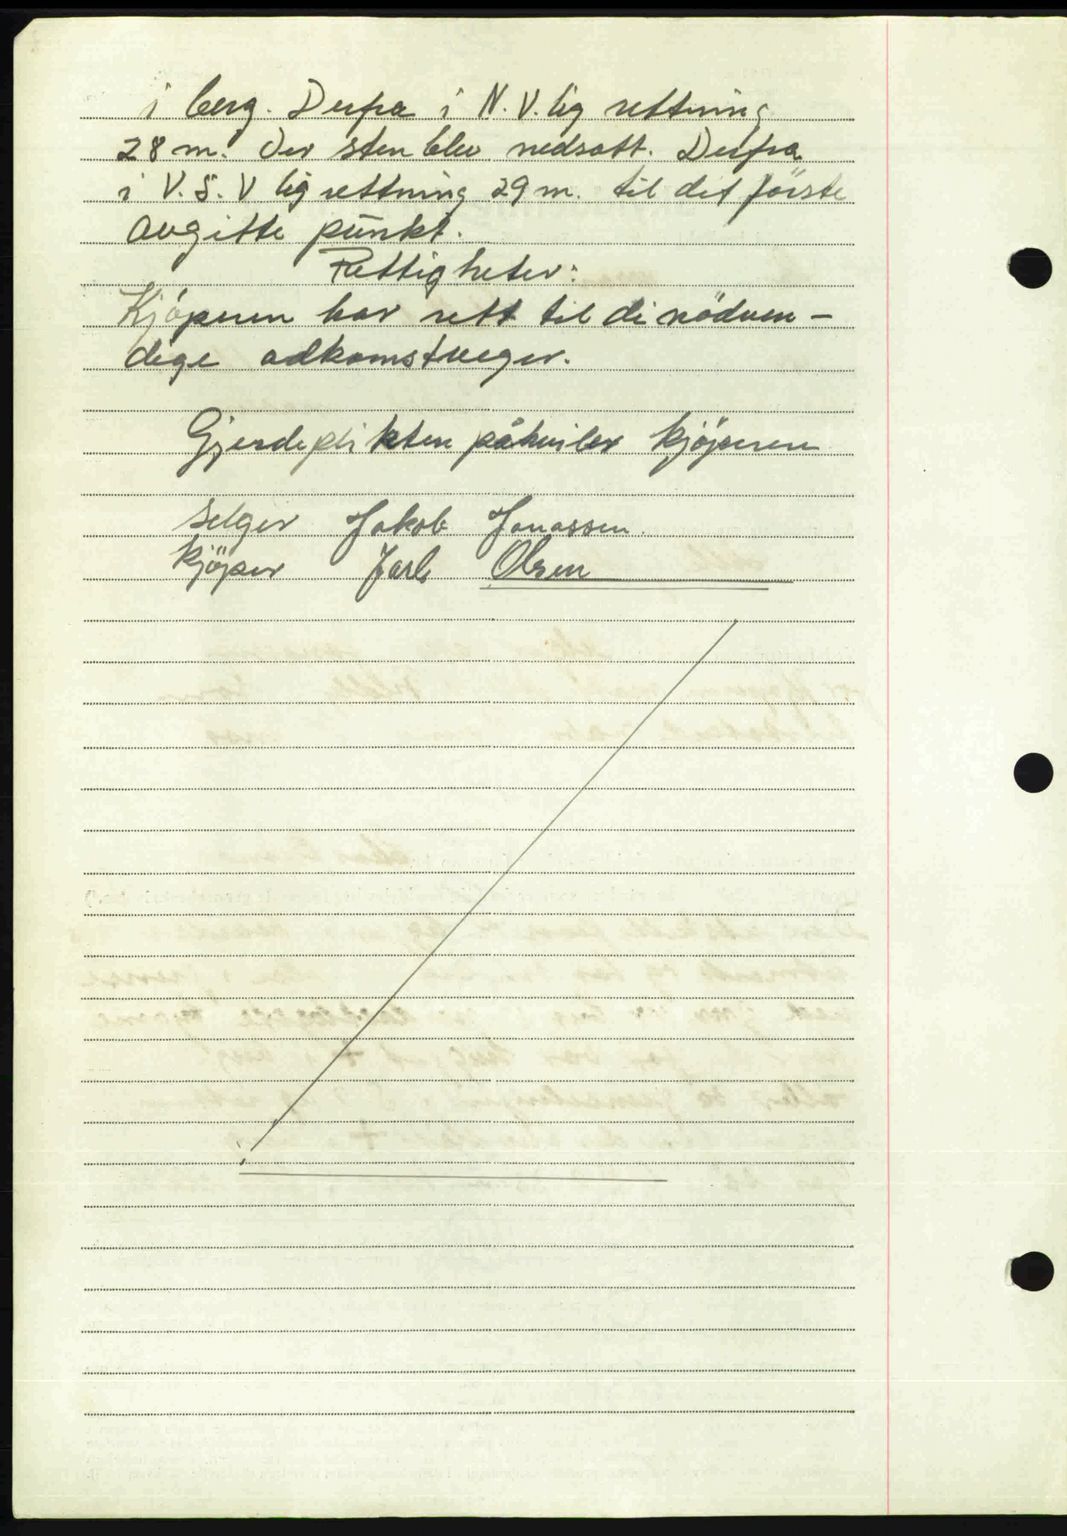 i berg. Derfra i N.V.lig rettning
28 m. der sten blev nedsatt. Derfra
i V.S.V lig rettning 29 m. til det förste
avgitte punkt.
Rettigheter:
Kjöperen har rett til de nödven-
dige adkomstveeger.
Gjerdeplikten påhviler kjöperen
Selger Jakob Jonassen.
Kjöper Jarl Olsen